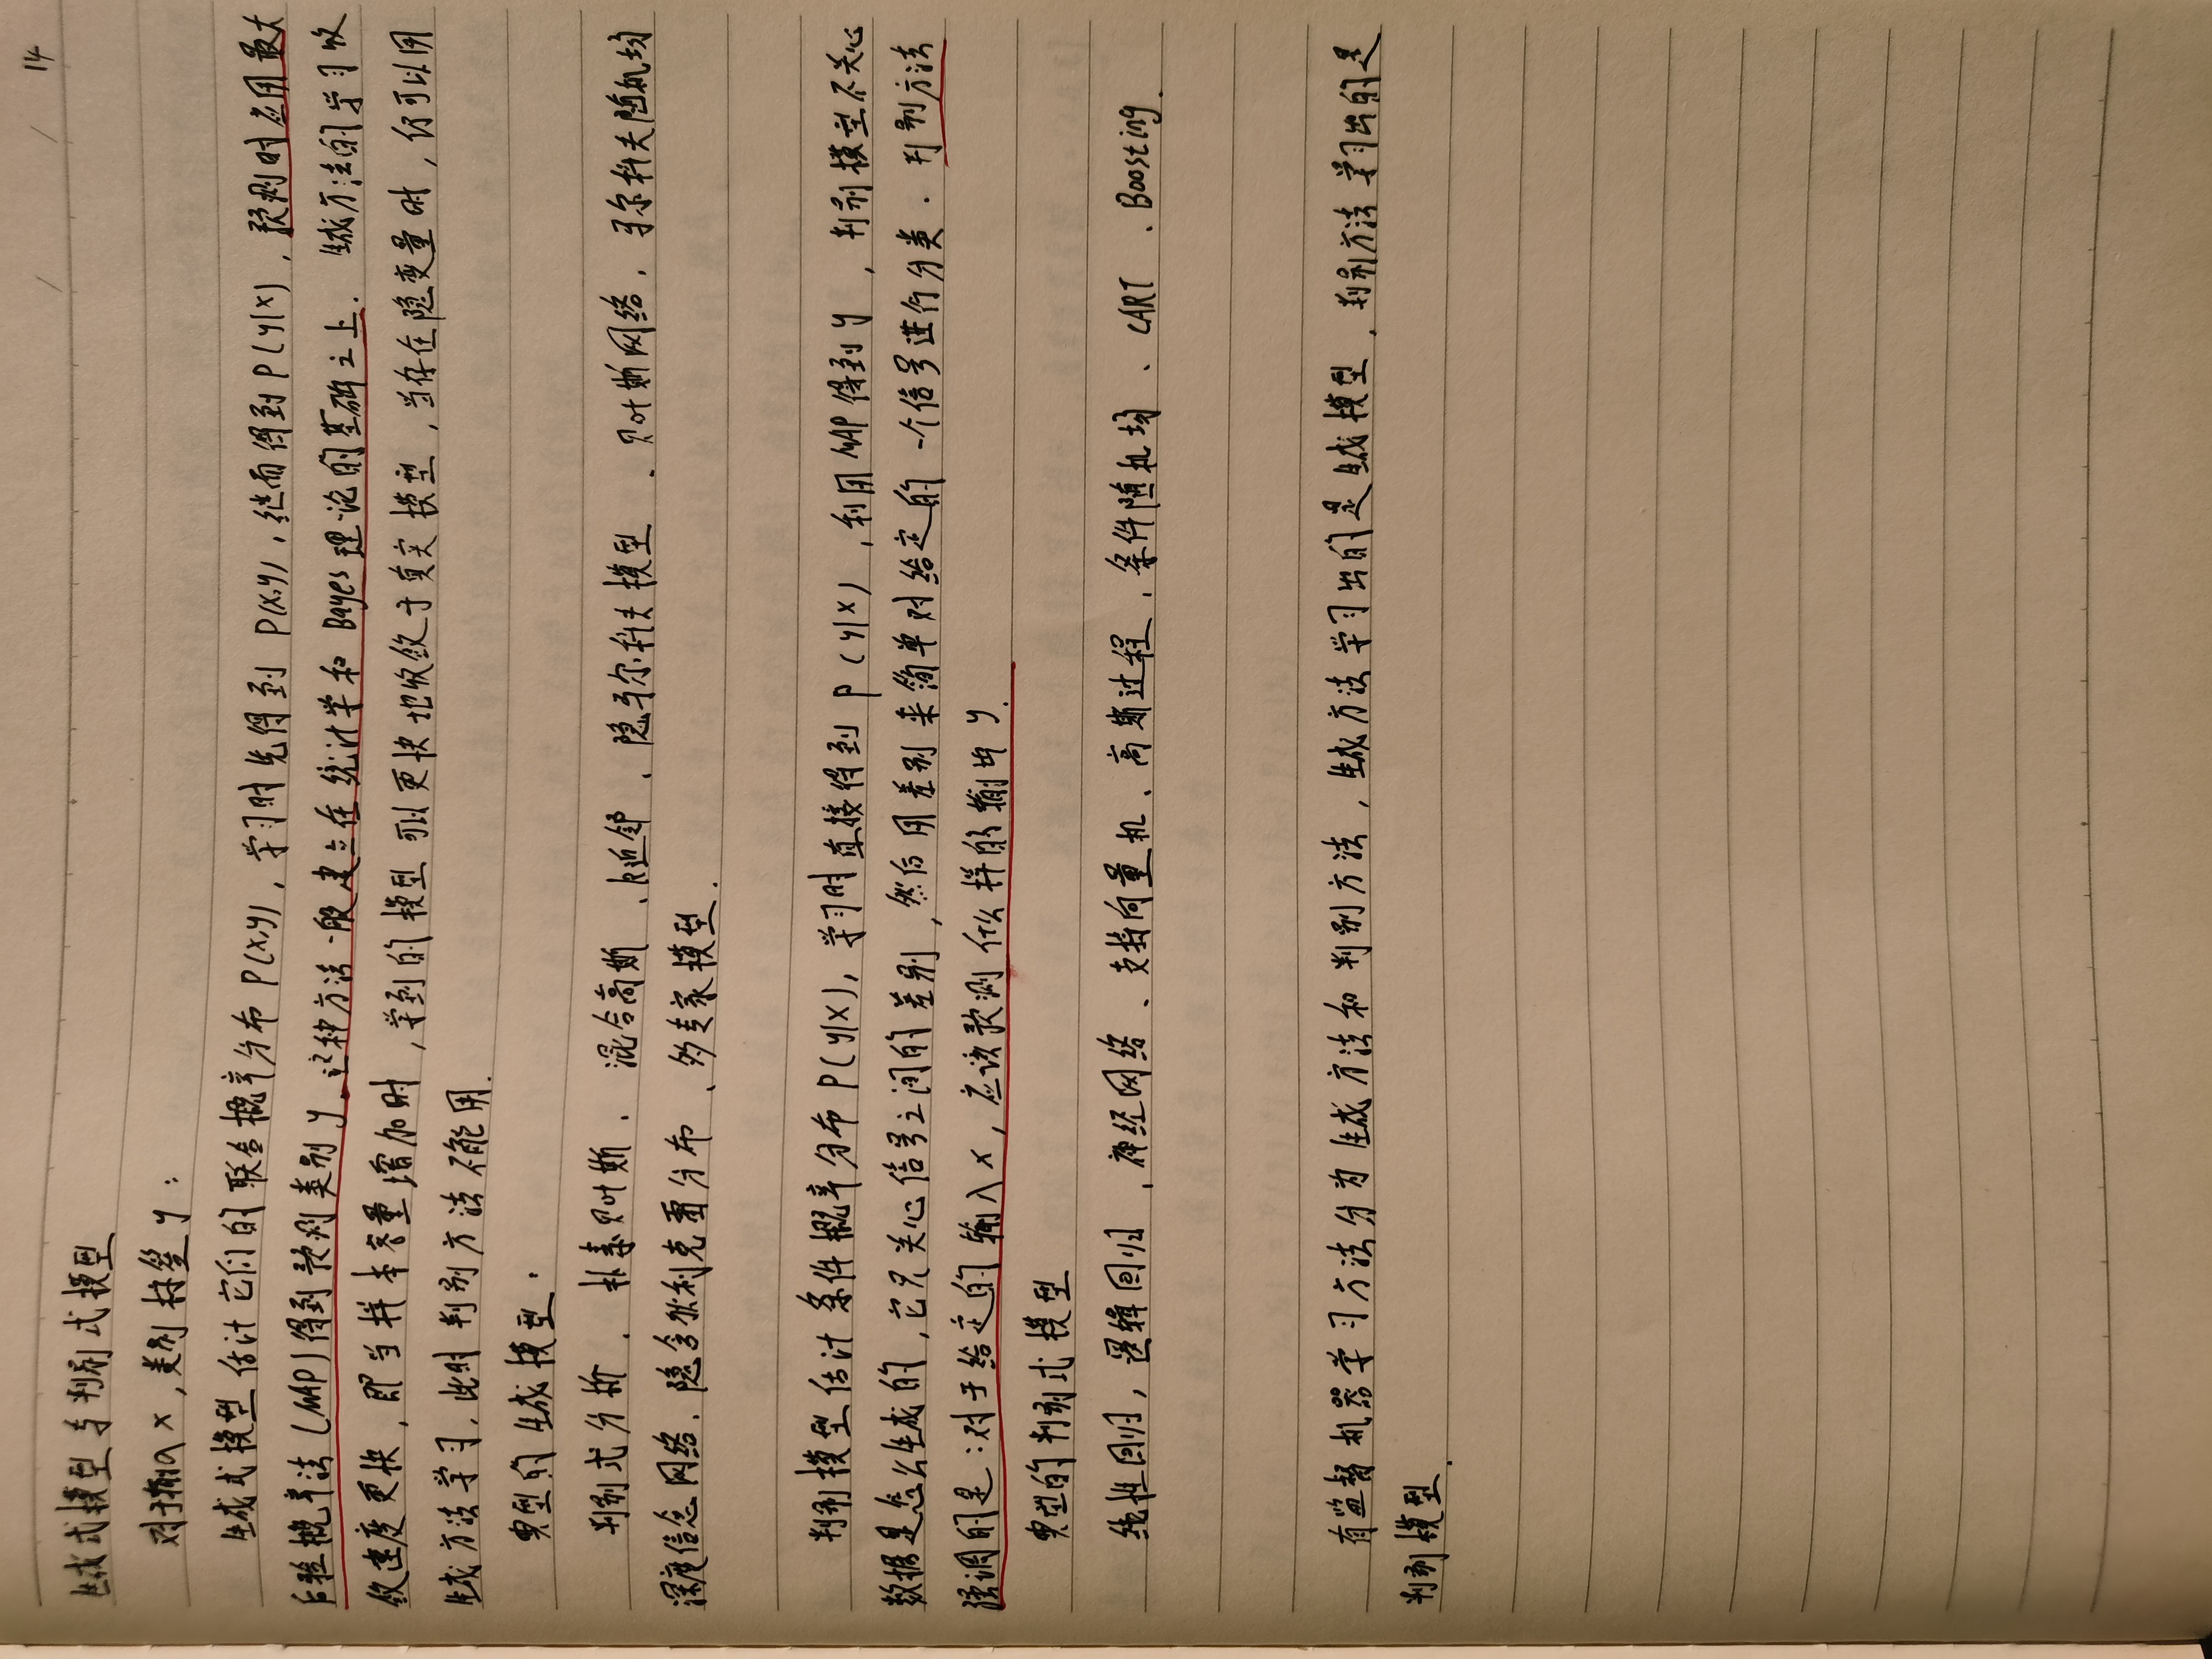 14
生成式模型与判别式模型
对于输入x，类别标签y：
生成式模型估计它们的联合概率分布P(x,y)，学习时先得到P(x,y)，继而得到P(y|x)，预测时应用最大
后验概率法(MAP)得到预测类别y，这种方法一般建立在统计学和Bayes理论的基础之上．生成方法的学习收
敛速度更快，即当样本容量增加时，学到的模型可以更快地收敛于真实模型，当存在隐变量时，仍可以用
生成方法学习，此时判别方法不能用．
典型的生成模型：
判别式分析、朴素贝叶斯、混合高斯、k近邻、隐马尔科夫模型、贝叶斯网络、马尔科夫随机场
深度信念网络、隐含狄利克雷分布、多专家模型．
判别模型估计条件概率分布P(y|x)，学习时直接得到P(y|x)，利用MAP得到y，判别模型不关心
数据是怎么生成的，它只关心信号之间的差别，然后用差别来简单对给定的一个信号进行分类．判别方法
强调的是：对于给定的输入x，应该预测什么样的输出y．
典型的判别式模型
线性回归，逻辑回归、神经网络、支持向量机、高斯过程、条件随机场、CART、Boosting．
有监督机器学习方法分为生成方法和判别方法，生成方法学习出的是生成模型，判别方法学习出的是
判别模型．